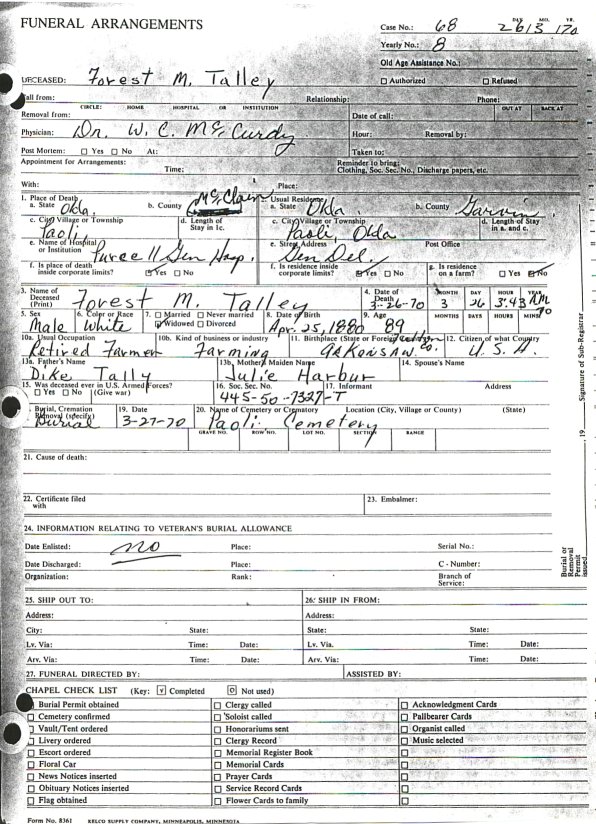 FUNERAL ARRANGEMENTS
Case No.: 68 DAY MO. YR. 26 3 70
Yearly No.: 8
Old Age Assistance No.:
DECEASED: Forest M. Talley □ Authorized □ Refused
Call from: Relationship: Phone:
CIRCLE: HOME HOSPITAL OR INSTITUTION OUT AT BACK AT
Removal from: Date of call:
Physician: Dr. W. C. McCurdy Hour: Removal by:
Post Mortem: □ Yes □ No At: Taken to:
Appointment for Arrangements: Reminder to bring:
Time: Clothing, Soc. Sec. No., Discharge papers, etc.
With: Place:
1. Place of Death Usual Residence
a. State Okla. b. County McClain a. State Okla b. County Garvin
c. City, Village or Township d. Length of Stay in 1c. c. City, Village or Township d. Length of Stay in a. and c.
Paoli Paoli Okla
e. Name of Hospital or Institution e. Street Address Post Office
Purcell Gen Hosp. Gen Del.
f. Is place of death inside corporate limits? ☑ Yes □ No f. Is residence inside corporate limits? ☑ Yes □ No g. Is residence on a farm? □ Yes ☑ No
3. Name of Deceased (Print) Forest M. Talley 4. Date of Death 3-26-70 MONTH 3 DAY 26 HOUR 3:43 AM YEAR 70
5. Sex 6. Color or Race 7. □ Married □ Never married 8. Date of Birth 9. Age MONTHS DAYS HOURS MINS.
Male White ☑ Widowed □ Divorced Apr. 25, 1880 89
10a. Usual Occupation 10b. Kind of business or industry 11. Birthplace (State or Foreign Co. 12. Citizen of what Country
Retired Farmer Farming Arkansaw U.S.A.
13a. Father's Name 13b. Mother's Maiden Name 14. Spouse's Name
Dike Tally Julie Harbur
15. Was deceased ever in U.S. Armed Forces? 16. Soc. Sec. No. 17. Informant Address
□ Yes □ No (Give war) 445-50-7327-T
Burial, Cremation Removal (specify) 19. Date 20. Name of Cemetery or Crematory Location (City, Village or County) (State)
Burial 3-27-70 Paoli Cemetery
GRAVE NO. ROW NO. LOT NO. SECTION RANGE
21. Cause of death:
22. Certificate filed with 23. Embalmer:
24. INFORMATION RELATING TO VETERAN'S BURIAL ALLOWANCE
Date Enlisted: no Place: Serial No.:
Date Discharged: Place: C - Number:
Organization: Rank: Branch of Service:
25. SHIP OUT TO: 26. SHIP IN FROM:
Address: Address:
City: State: State: State:
Lv. Via: Time: Date: Lv. Via: Time: Date:
Arv. Via: Time: Date: Arv. Via: Time: Date:
27. FUNERAL DIRECTED BY: ASSISTED BY:
CHAPEL CHECK LIST (Key: ☑ Completed ⊡ Not used)
Burial Permit obtained □ Clergy called □ Acknowledgment Cards
□ Cemetery confirmed □ Soloist called □ Pallbearer Cards
□ Vault/Tent ordered □ Honorariums sent □ Organist called
□ Livery ordered □ Clergy Record □ Music selected
□ Escort ordered □ Memorial Register Book □
□ Floral Car □ Memorial Cards □
□ News Notices inserted □ Prayer Cards □
□ Obituary Notices inserted □ Service Record Cards □
□ Flag obtained □ Flower Cards to family □
Form No. 8361 RELCO SUPPLY COMPANY, MINNEAPOLIS, MINNESOTA
Burial or Removal Permit issued , 19 Signature of Sub-Registrar